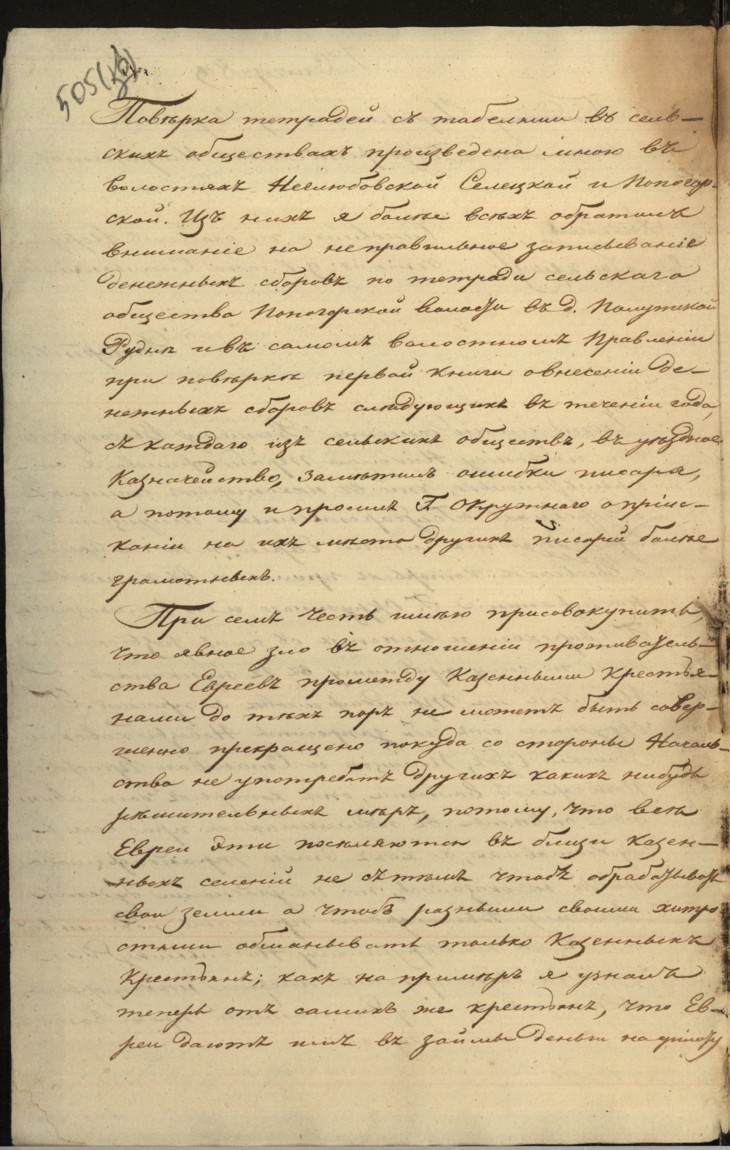 505(об)
Повѣрка тетрадей съ табелями въ сель-
скихъ обществахъ произведена мною въ
волостяхъ Неглюбовской Селецкой и Попогор-
ской. Изъ нихъ я болѣе всѣхъ обратилъ
вниманіе на неправильное записываніе
денежныхъ сборовъ по тетради сельскаго
общества Попогорской волости въ д. Палужской
Руднѣ и въ самомъ волостномъ Правленіи
при повѣркѣ первой книги о внесеніи де-
нежныхъ сборовъ слѣдующихъ въ теченіи года,
съ каждаго изъ сельскихъ обществъ, въ уѣздное
Казначейство, замѣтилъ ошибки писаря,
а потому и просилъ Г. Окружнаго о пріис-
каніи на ихъ мѣста другихъ писарей болѣе
грамотныхъ.
При семъ честь имѣю присовокупить,
что явное зло въ отношеніи противозель-
ства Евреевъ промежду Казенными Крестья-
нами до тѣхъ поръ не можетъ быть совер-
шенно прекращено покуда со стороны Началь-
ства не употребятъ другихъ какихъ нибудь
рѣшительныхъ мѣръ, потому, что всѣ
Евреи эти поселяются въ близи казен-
ныхъ селеній не съ тѣмъ чтобъ обработывать
свои земли а чтобъ разными своими хитро
стями обманывать только Казенныхъ
Крестьянъ; какъ на примѣръ я узналъ
теперь отъ самихъ же крестьянъ, что Ев-
реи даютъ имъ въ займы деньги на